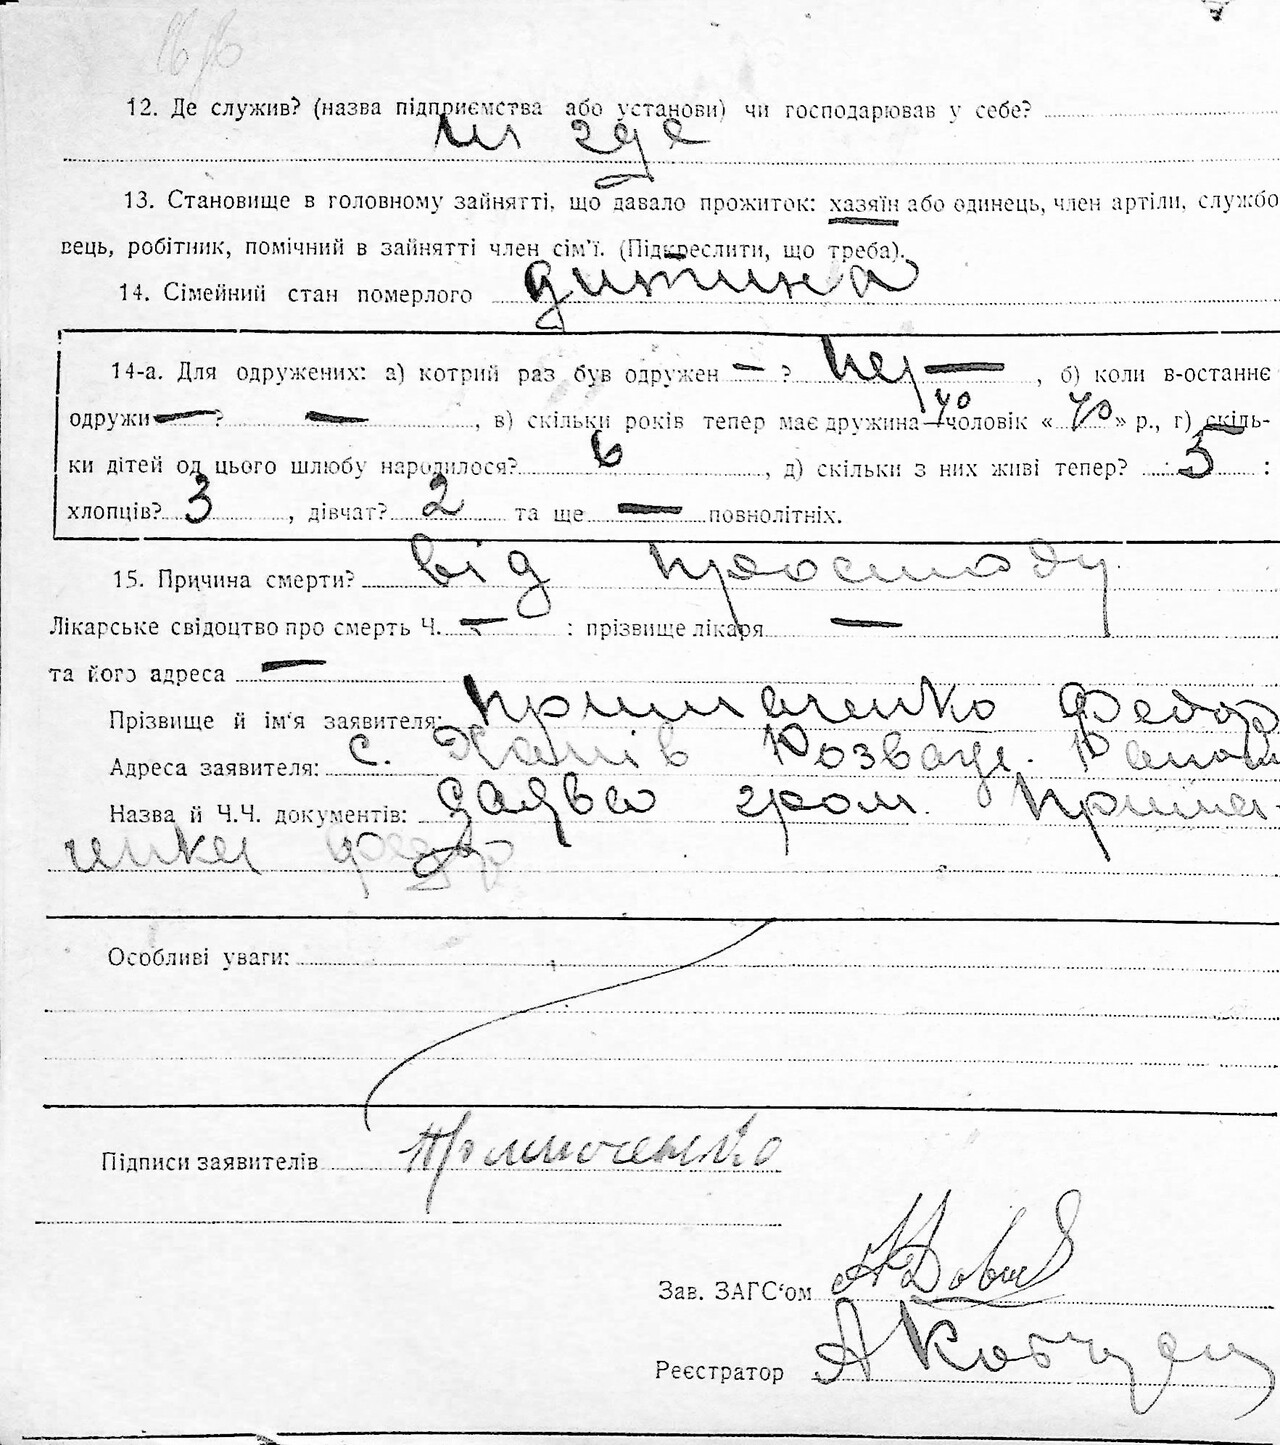 12. Де служив? (назва підприємства або установи) чи господарював у себе?
ни где
13. Становище в головному зайнятті, що давало прожиток: хазяїн або одинець, член артіли, службо
вець, робітник, помічний в зайнятті член сім'ї. (Підкреслити, що треба).
14. Сімейний стан померлого дитина
14-а. Для одружених: а) котрий раз був одружен — ? пер — , б) коли в-останнє
одружи — ? — , в) скільки років тепер має дружина — 40 чоловік « 40 » р., г) скіль-
ки дітей од цього шлюбу народилося? 6 , д) скільки з них живі тепер? 5 :
хлопців? 3 , дівчат? 2 та ще — повнолітніх.
15. Причина смерти? від простоду
Лікарське свідоцтво про смерть Ч. — : прізвище лікаря —
та його адреса —
Прізвище й ім'я заявителя: Примаченко Федор
Адреса заявителя: с. Розваж.
Назва й Ч.Ч. документів: заява гром. Прима-
ченка Федор
Особливі уваги:
Підписи заявителів Примаченко
Зав. ЗАГС'ом
Реєстратор